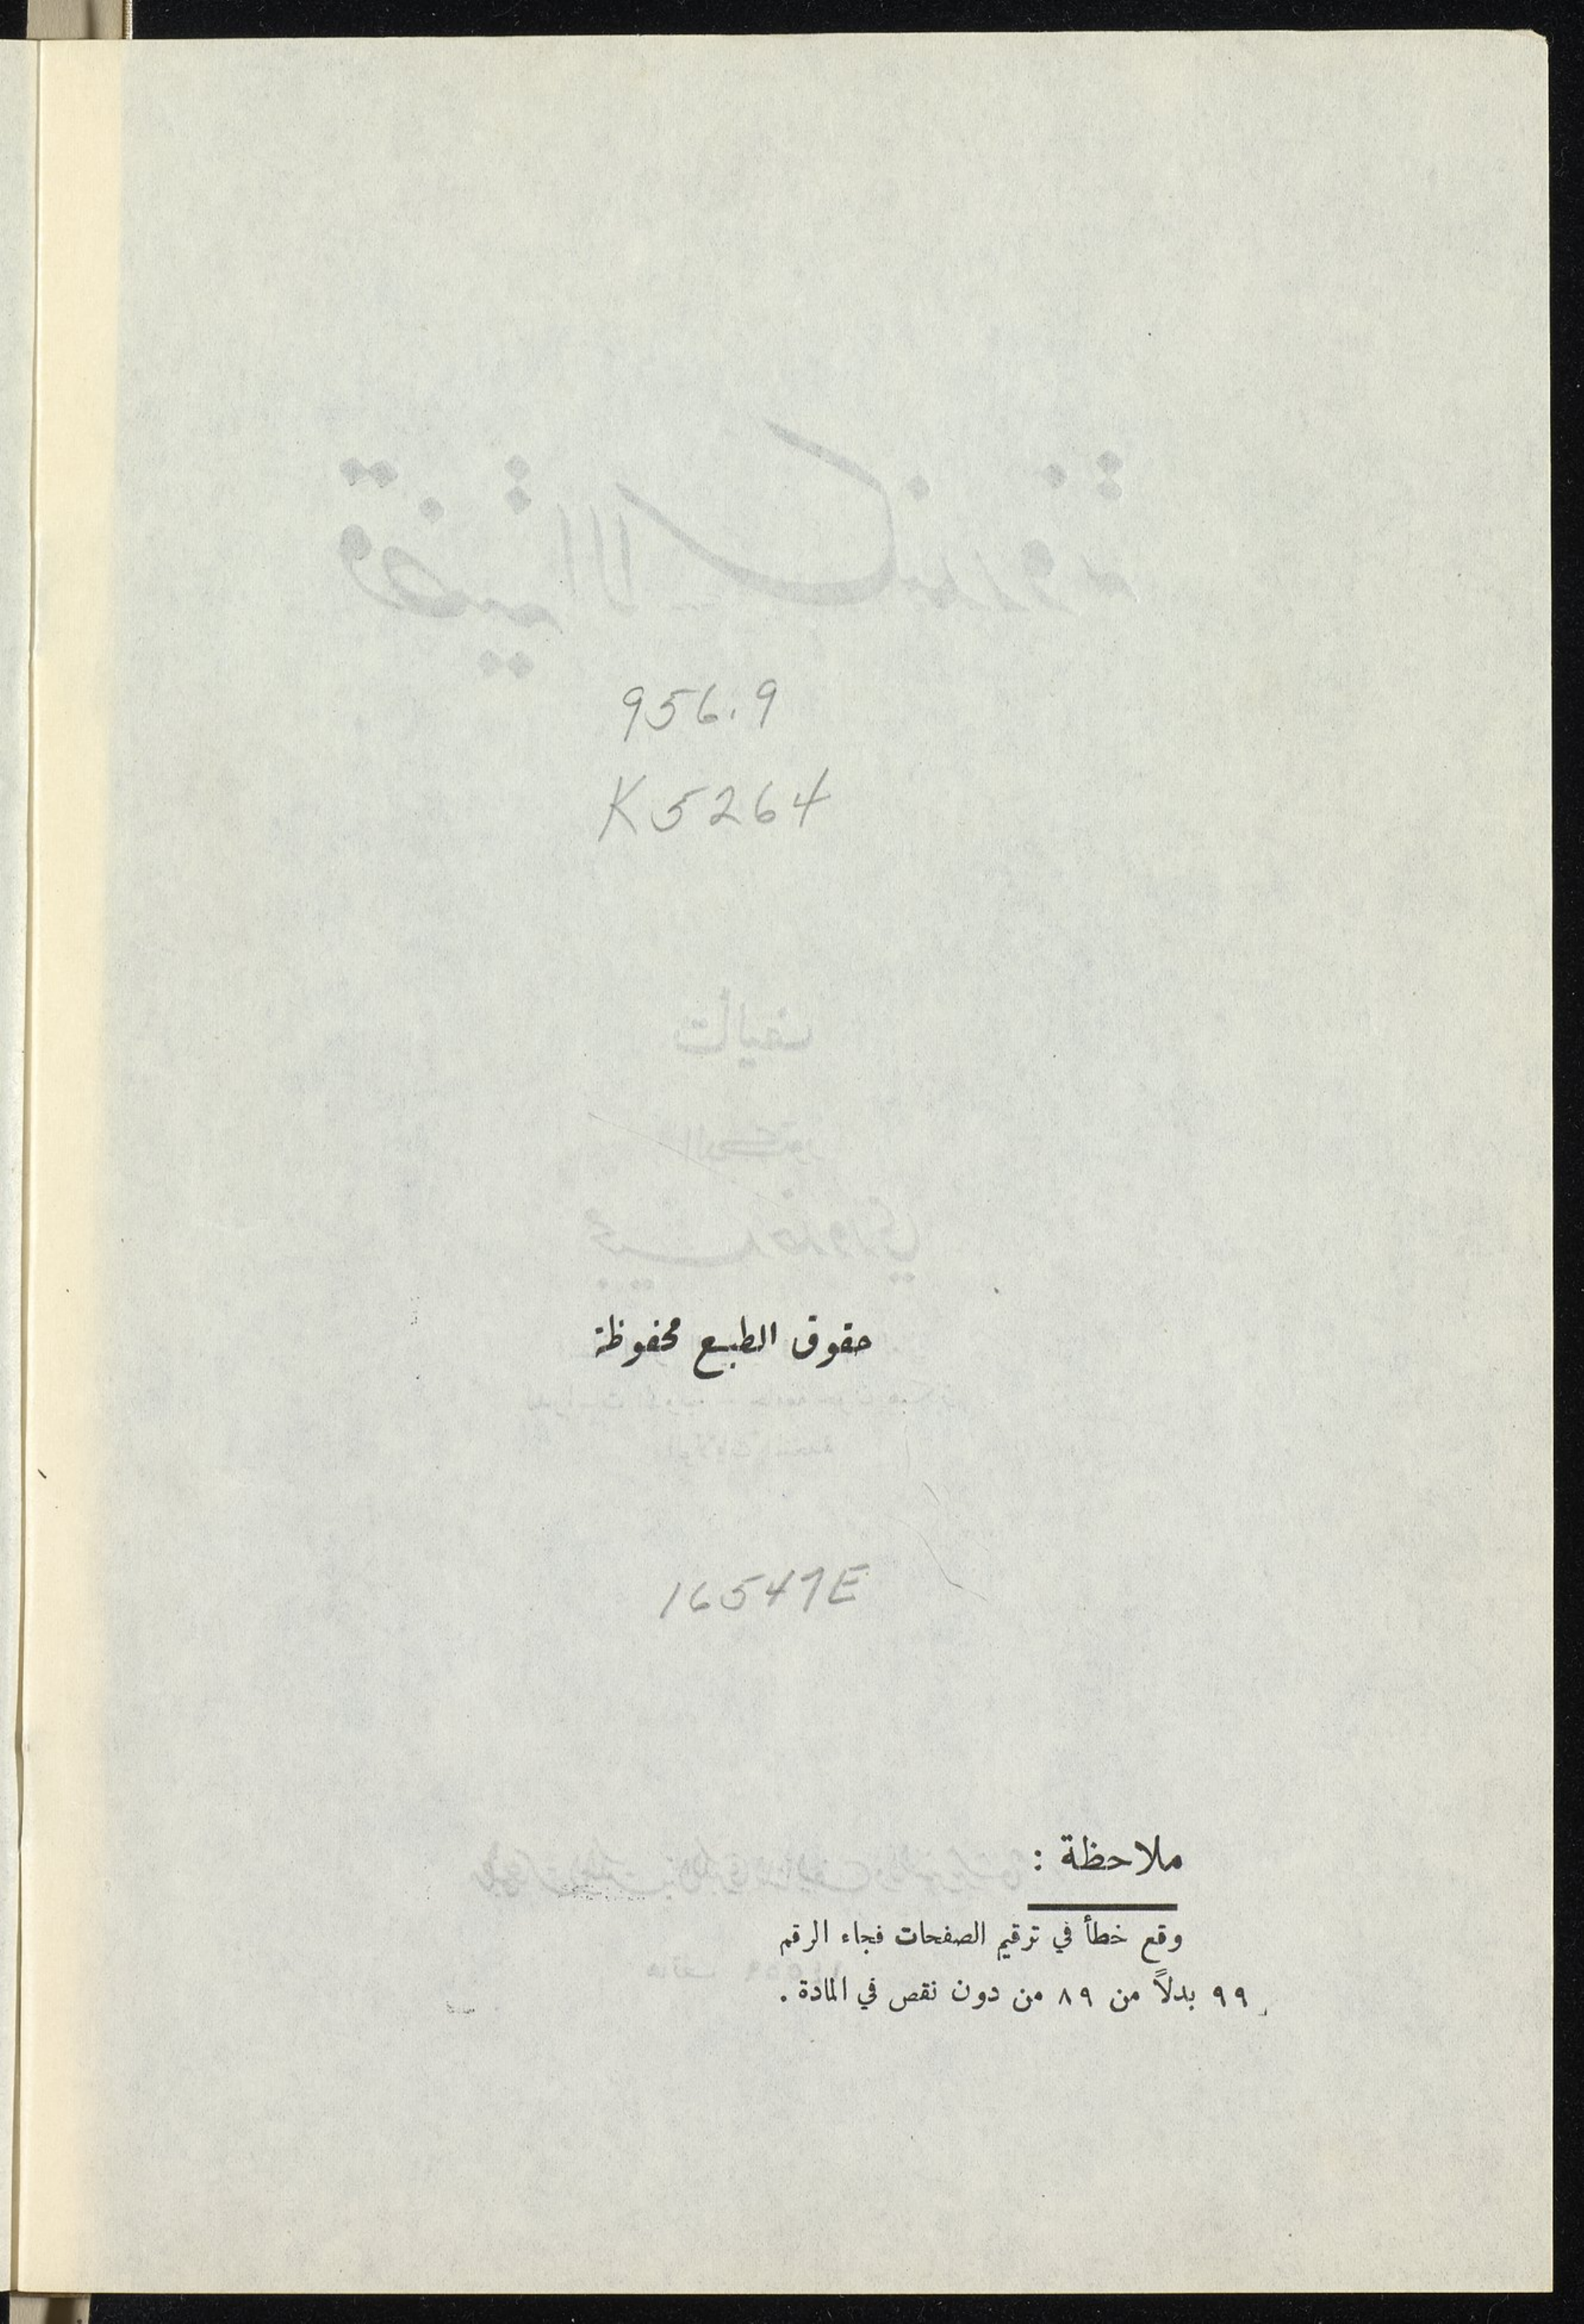 956.9
K5264
حقوق الطبع محفوظة
16547E
ملاحظة :
وقع خطأ في ترقيم الصفحات فجاء الرقم
٩٩ بدلاً من ٨٩ من دون نقص في المادة .